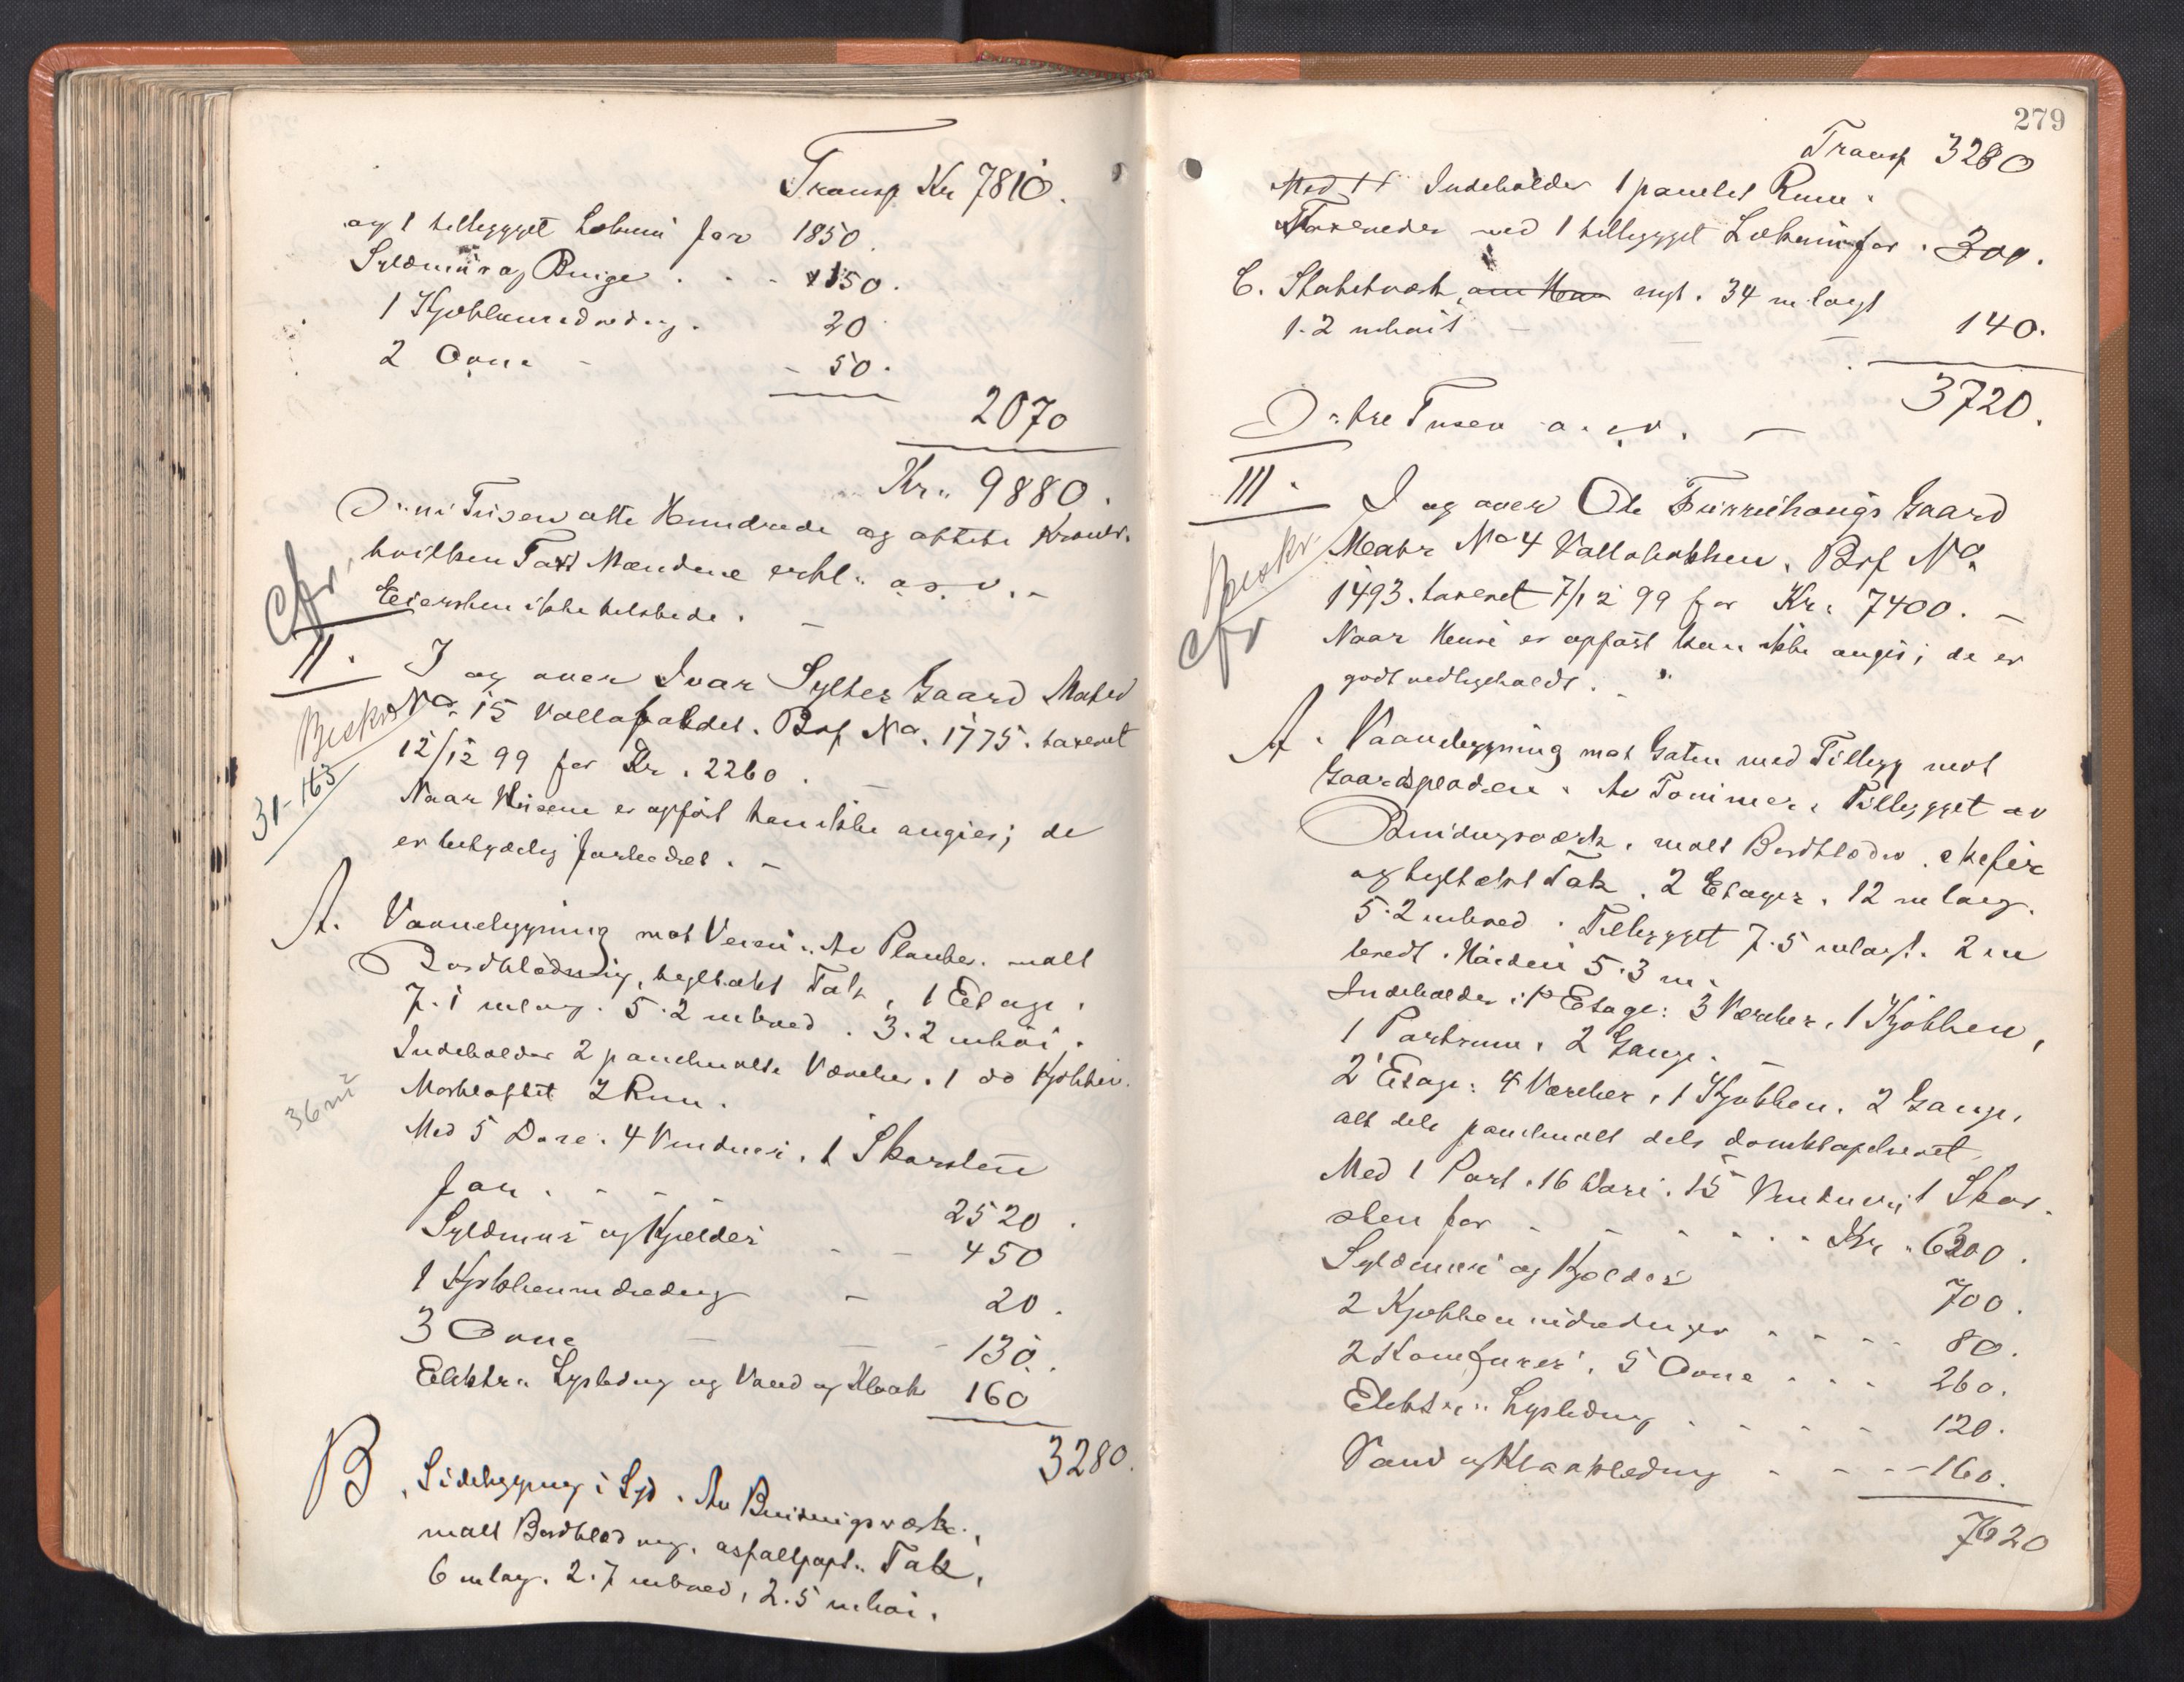 Transp Kr 7810.
og 1 tilbygget Lokum for 1850.
Syldmur og Bruge . . - 150.
1 Kjøkkenindredng. 20
2 Ovne - - 50.
2070
Kr. 9880.
D. ni Tusen otte Hundrede og ottete Kroner.
hvilken Taxt Mændene erkl. o.s.v. -
cfr. Eiersken ikke tilstede. -
II. I og over Ivar Syltes Gaard Matr
Beskr No. 15 Vollafaldet. Brf No. 1775. taxeret
12/12 99 for Kr. 2260. -
31-163
Naar Husene er opført kan ikke angies; de
er betydelig forbedret. -
A. Vaanebygning mot Veien. Av Planker. malt
Bordklædning, teglhækt Tak, 1 Etage,
7.1 m lang. 5.2 m bred. 3.2 m høi.
Indeholder 2 panelmalte Værelser. 1 do Kjøkken.
36 m²
Mørkloftet 2 Rum.
Med 5 Døre. 4 Vinduer. 1 Skorsten
for . - - - 2520.
Syldmur og Kjelder - - 450
1 Kjøkkenindredng - 20.
3 Ovne - - 130.
Elektr. Lysledng og Vand og Kloak 160
3280.
B. Sidebygng i Syd. Av Bindingsværk.
malt Bordklædnng. asfaltpapt. Tak,
6 m lang. 2.7 m bred, 2.5 m høi.
279
Transp 3280
Indeholder 1 panelet Rum.
Taxeredes med 1 tilbygget Lokum for . 300.
C. Stakitværk, nyt. 34 m langt
1.2 m høit - - - 140.
3720.
D. tre Tusen o.s.v. -
III. I og over Ole Furuhougs Gaard
Beskr. Matr No 4 Vollabakken. Brf No.
1493. taxeret 7/12 99 for Kr. 7400. -
cfr
Naar Huse er opført kan ikke angis; de er
godt vedligeholdt. -
A. Vaanebygning mot Gaten med Tilbygg mot
Gaardspladsen. Av Tømmer, Tilbygget av
Bindingsværk, malt Bordklædn. skifer
og teglhækt Tak. 2 Etager. 12 m lang.
5.2 m bred. Tilbygget 7.5 m langt. 2 m
bredt. Høiden 5.3 m.
Indeholder i 1ste Etage: 3 Værelser, 1 Kjøkken,
1 Portrum, 2 Gange. -
2' Etage: 4 Værelser, 1 Kjøkken. 2 Gange,
alt dels panelmalt dels tapetseret
Med 1 Port. 16 Døre. 15 Vinduer, 1 Skor-
sten for - - - . . - Kr. 6300.
Syldmur og Kjelder 700.
2 Kjøkkenindredninger . - - - 80.
2 Komfurer, 5 Ovne . - - 260.
Elektr. Lysledng . - - - 120.
Vand og Kloakledng - - - 160.
7620